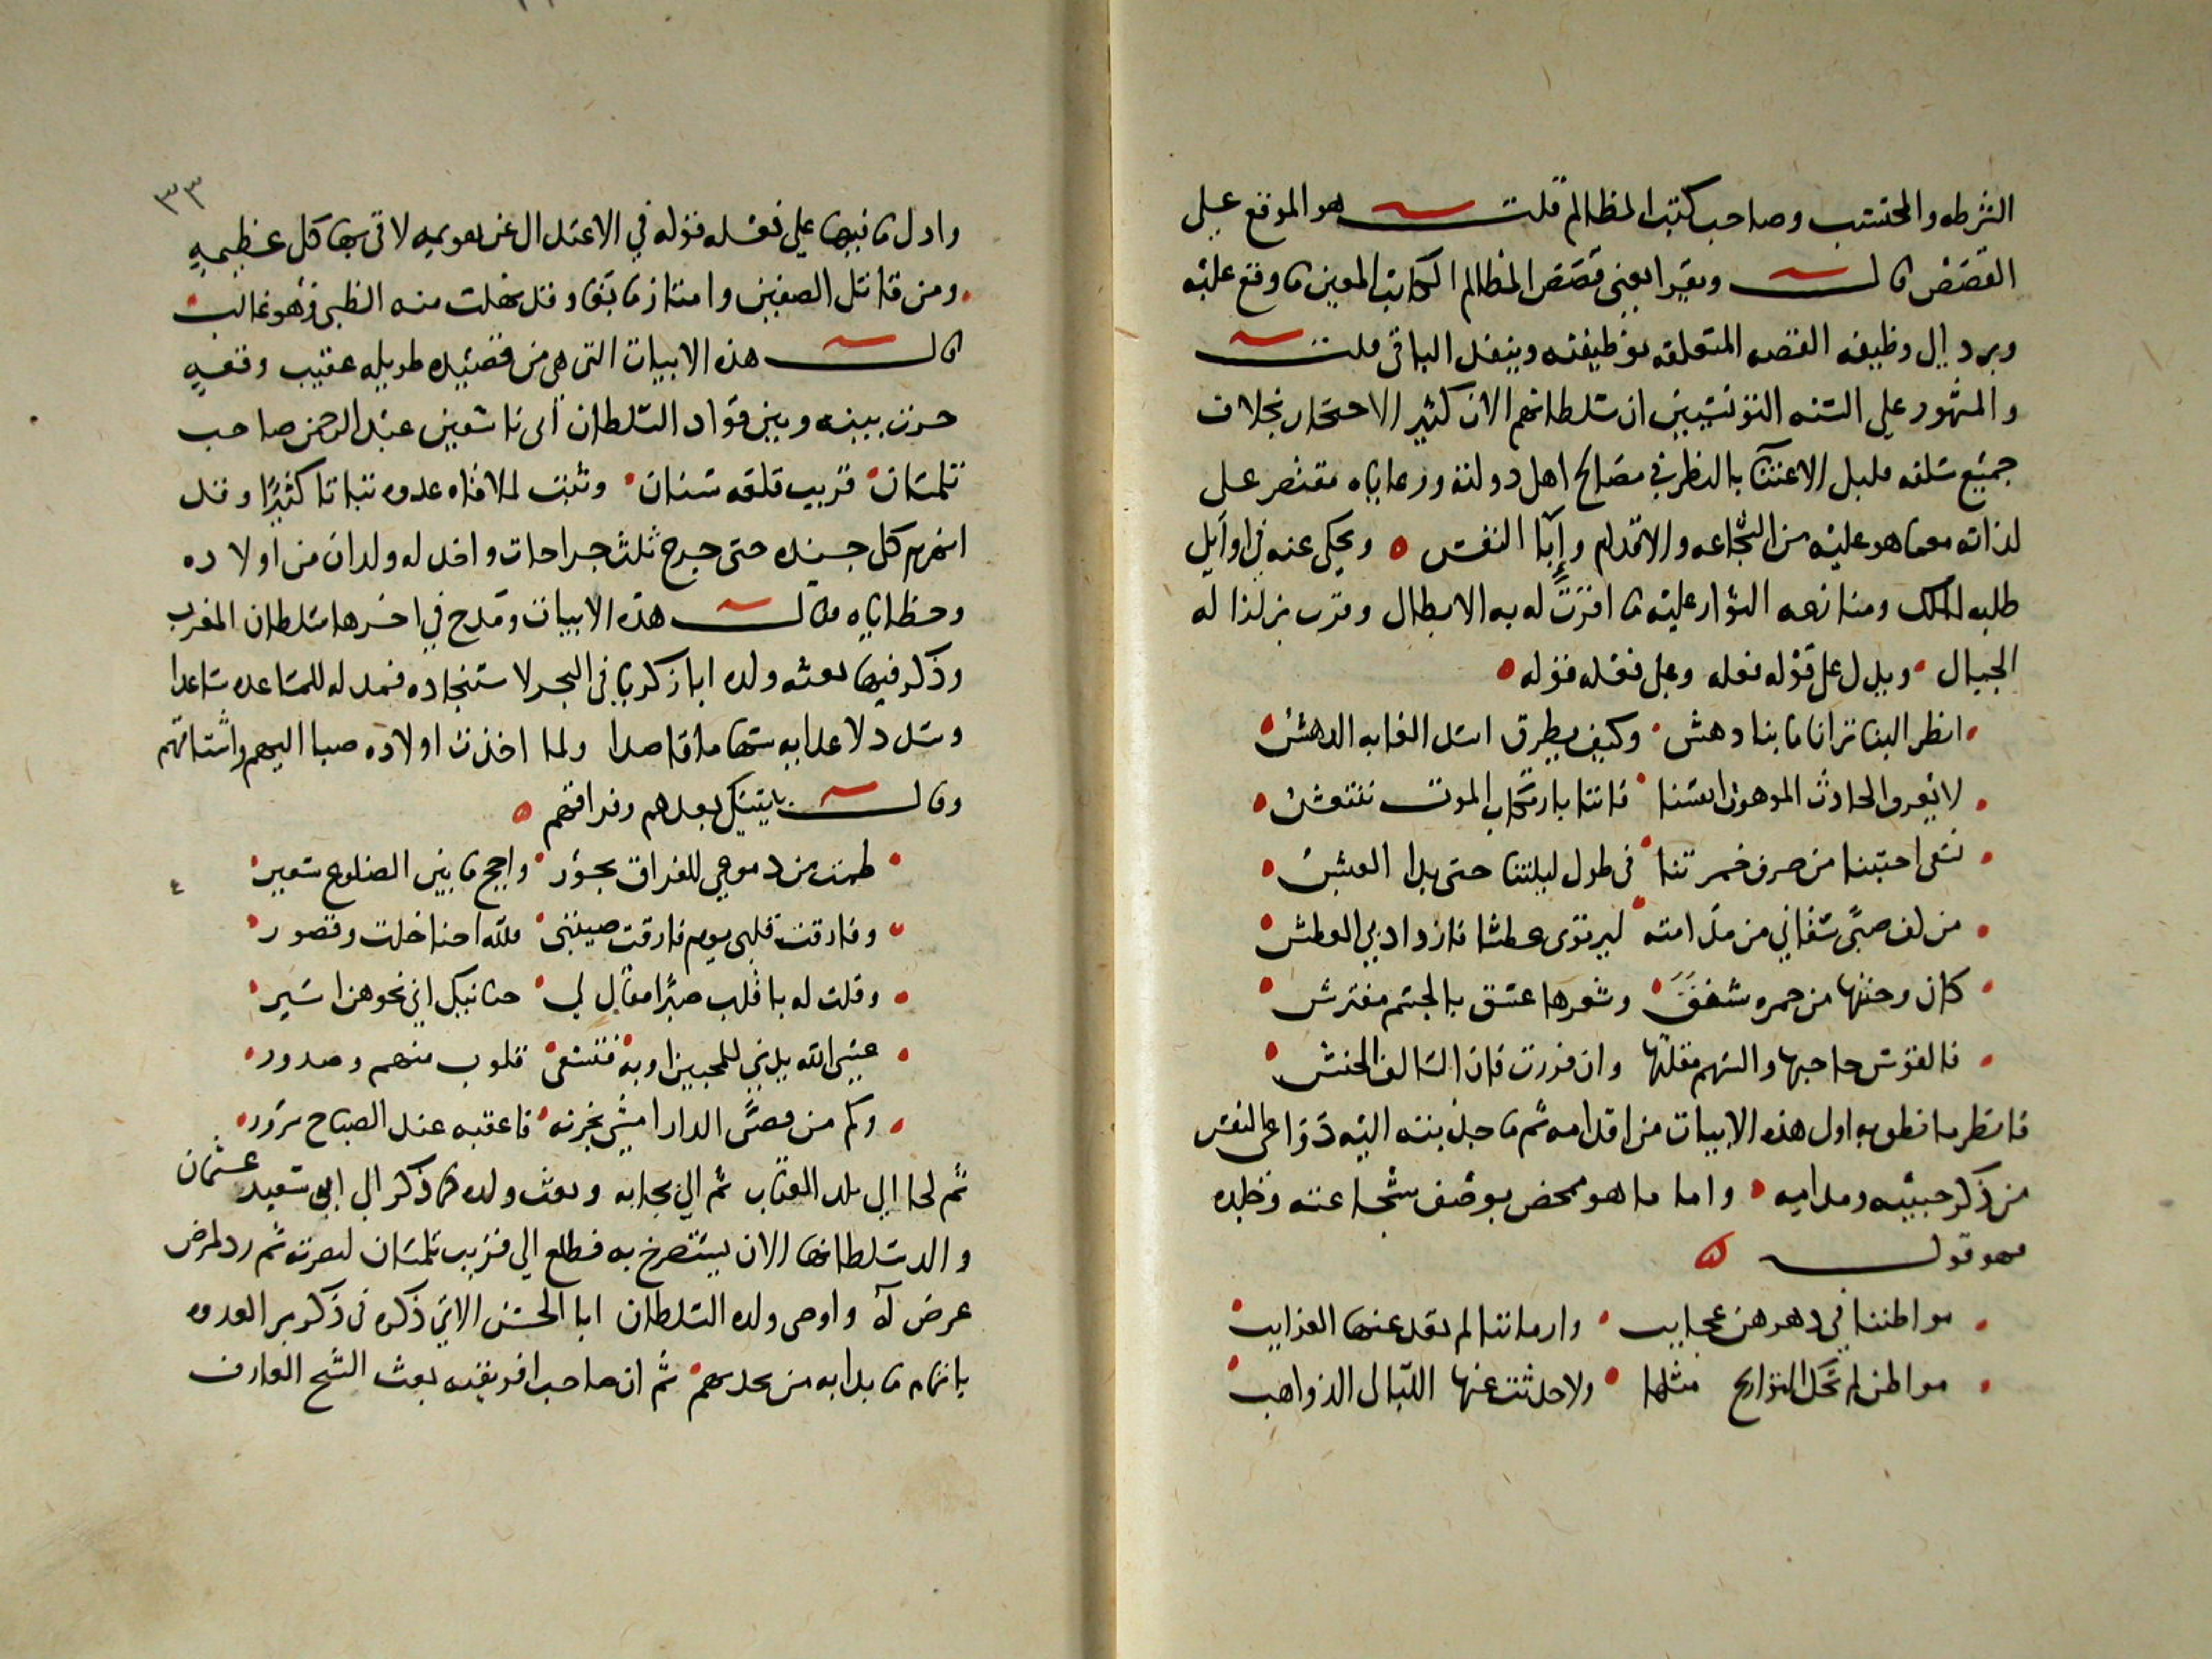 الشرطه والمحتسب وصاحب كتب المظالم قلت هو الموقع على
القصص قال ويقرا يعني قصص المظالم الكاتب المعين ما وقع عليه
ويرد الى وظيفه القصه المتعلقه بوظيفته وينفذ الباقي قلت
والمشهور على السنه التونسيين ان سلطانهم الان كثير الاحتجار بخلاف
جميع سلفه قليل الاعتنآ بالنظر في مصالح اهل دولته ورعاياه مقتصر على
لذاته معما هو عليه من الشجاعه والاقدام وإبآ النفس ه ويحكى عنه في اوايل
طلبه للملك ومنازعه الثوار عليه ما اقرت له به الابطال
الجبال ويدل على قوله فعله وعلى فعله قوله
انظر الينا ترانا ما بنا دهش وكيف يطرق اسد الغابه الدهش
لا تعرف الحادث الموهون انفسنا فاننا بارتكاب الموت ننتعش
نسقى احبتنا من صرف خمرتنا في طول ليلتنا حتى بدا الغبش
من كف صبى سقاني من مدامته ليرتوى عطشا فازداد بي العطش
كان وجنتها من حمره شفق وشعرها غسق بالجسم مفترش
فالقوس حاجبها والسهم مقلتها وان فزرت فان السالف الحنش
فانظر ما نطق به اول هذه الابيات من اقدامه ثم ما جذبته اليه
من ذكر حبيبه ومدامه واما ما هو محض بوصف شجاعته وجلده
فهو قوله ه
مواطننا في دهرهن عجايب وازماننا لم تعد عنها الغرايب
مواطن لم تحك التواريخ مثلها ولا حدثت عنها الليالي الذواهب
٣٣
وادل ما فيها على فعله قوله في
ومن قاتل الصفين وامتاز ما بقى وقد بخلت منه الظبى فهو غالب
قال هذه الابيات التي هي من قصيده طويله عقيب وقعه
جرت بينه وبين قواد السلطان ابى تاشفين عبد الرحمن صاحب
تلمسان قريب قلعه سنان وثبت لملاقاه عدوه ثباتا كثيرًا وقد
انهزم كل جنده حتى جرح ثلث جراحات واخذ له ولدان من اولاده
وحظاياه فقال هذه الابيات ومدح في اخرها سلطان المغرب
وذكر فيها بعثه ولده ابا زكريا في البحر لاستنجاده فمد له للمساعده ساعدا
وسدد لاعدايه سهاما قاصدا ولما اخذت اولاده صبا اليهم واشتاقهم
وقال يتشكى بعدهم وفراقهم ه
طمت من دموعي للفراق بحور واجج ما بين الضلوع سعير
وفارقت قلبى يوم فارقت صبيتى فلله احنا خلت وقصور
وقلت له يا قلب صبرًا فقال لي حنانيك اني نحو هذا اسير
عسى الله يدني للمحبين اوبه فتشفى قلوب منهم وصدور
وكم من قصى الدار امسى بحزنه فاعقبه عند الصباح سرور
ثم لجا الى بلد العناب ثم الى بجايه وبعث ولده كما ذكر الى ابي سعيد عثمان
والد سلطانها الان يستصرخ به فطلع الى قريب تلمسان لنصرته ثم رد لمرض
عرض له واوصى ولده السلطان ابا الحسن الاتي ذكره في ذكر بر العدوه
باتمام ما بدا به من نجدتهم ثم ان صاحب افريقيه بعث الشيخ العارف